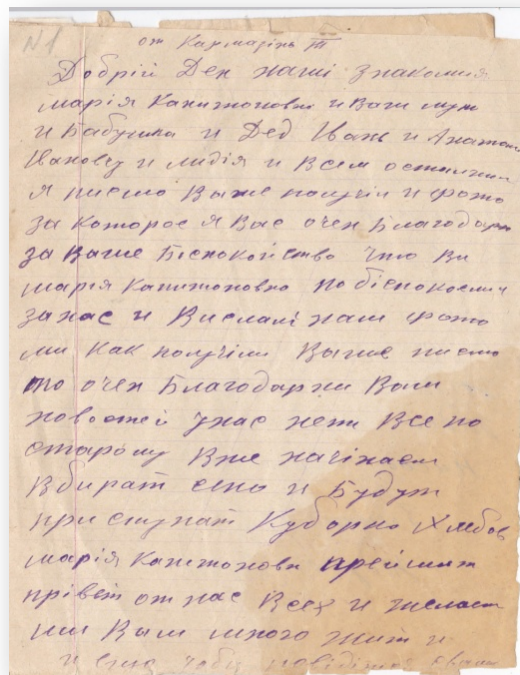 N1
от Кармазінь Т
Добрій Ден наші знакомия
марія Капитоновна и Ваш муж
и Бабушка и Дед Іван и Анатол
Івановеч и лидія и Всем остални
я писмо Ваше получіл и фото
за которое я Вас очен Благодарю
за Ваше Беспокойство что Ви
марія Капитоновна побіспокоилис
за нас и Вислалі нам фото
ми как получіли Ваше писмо
то очен Благодарни Вам
новостей унас нет Все по
старому Вже начінаем
Вбират сено и Будут
приступат Куборке Хлебов
марія Капитоновна преймит
прівет от нас Всех и желаем
ми Вам много жит и
и еще чоби повідітся